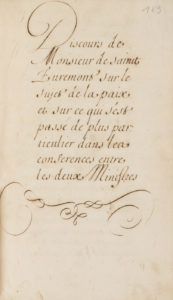 163
Discours de
Monsieur de saint
Euremont sur le
sujet de la paix
et sur ce qui s'est
passe de plus par
ticulier dans les
conferences entre
les deux Ministres